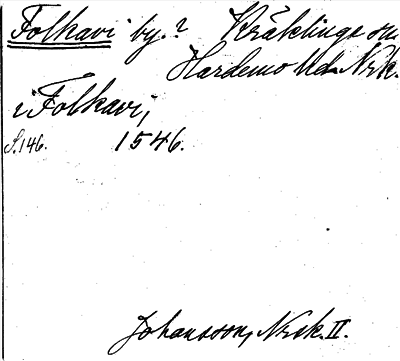 Folkavi by.? Kräklinge sn
Hardemo hd Nrk.
i Folkavi,
S.146. 1546.
Johansson, Nrk. II.